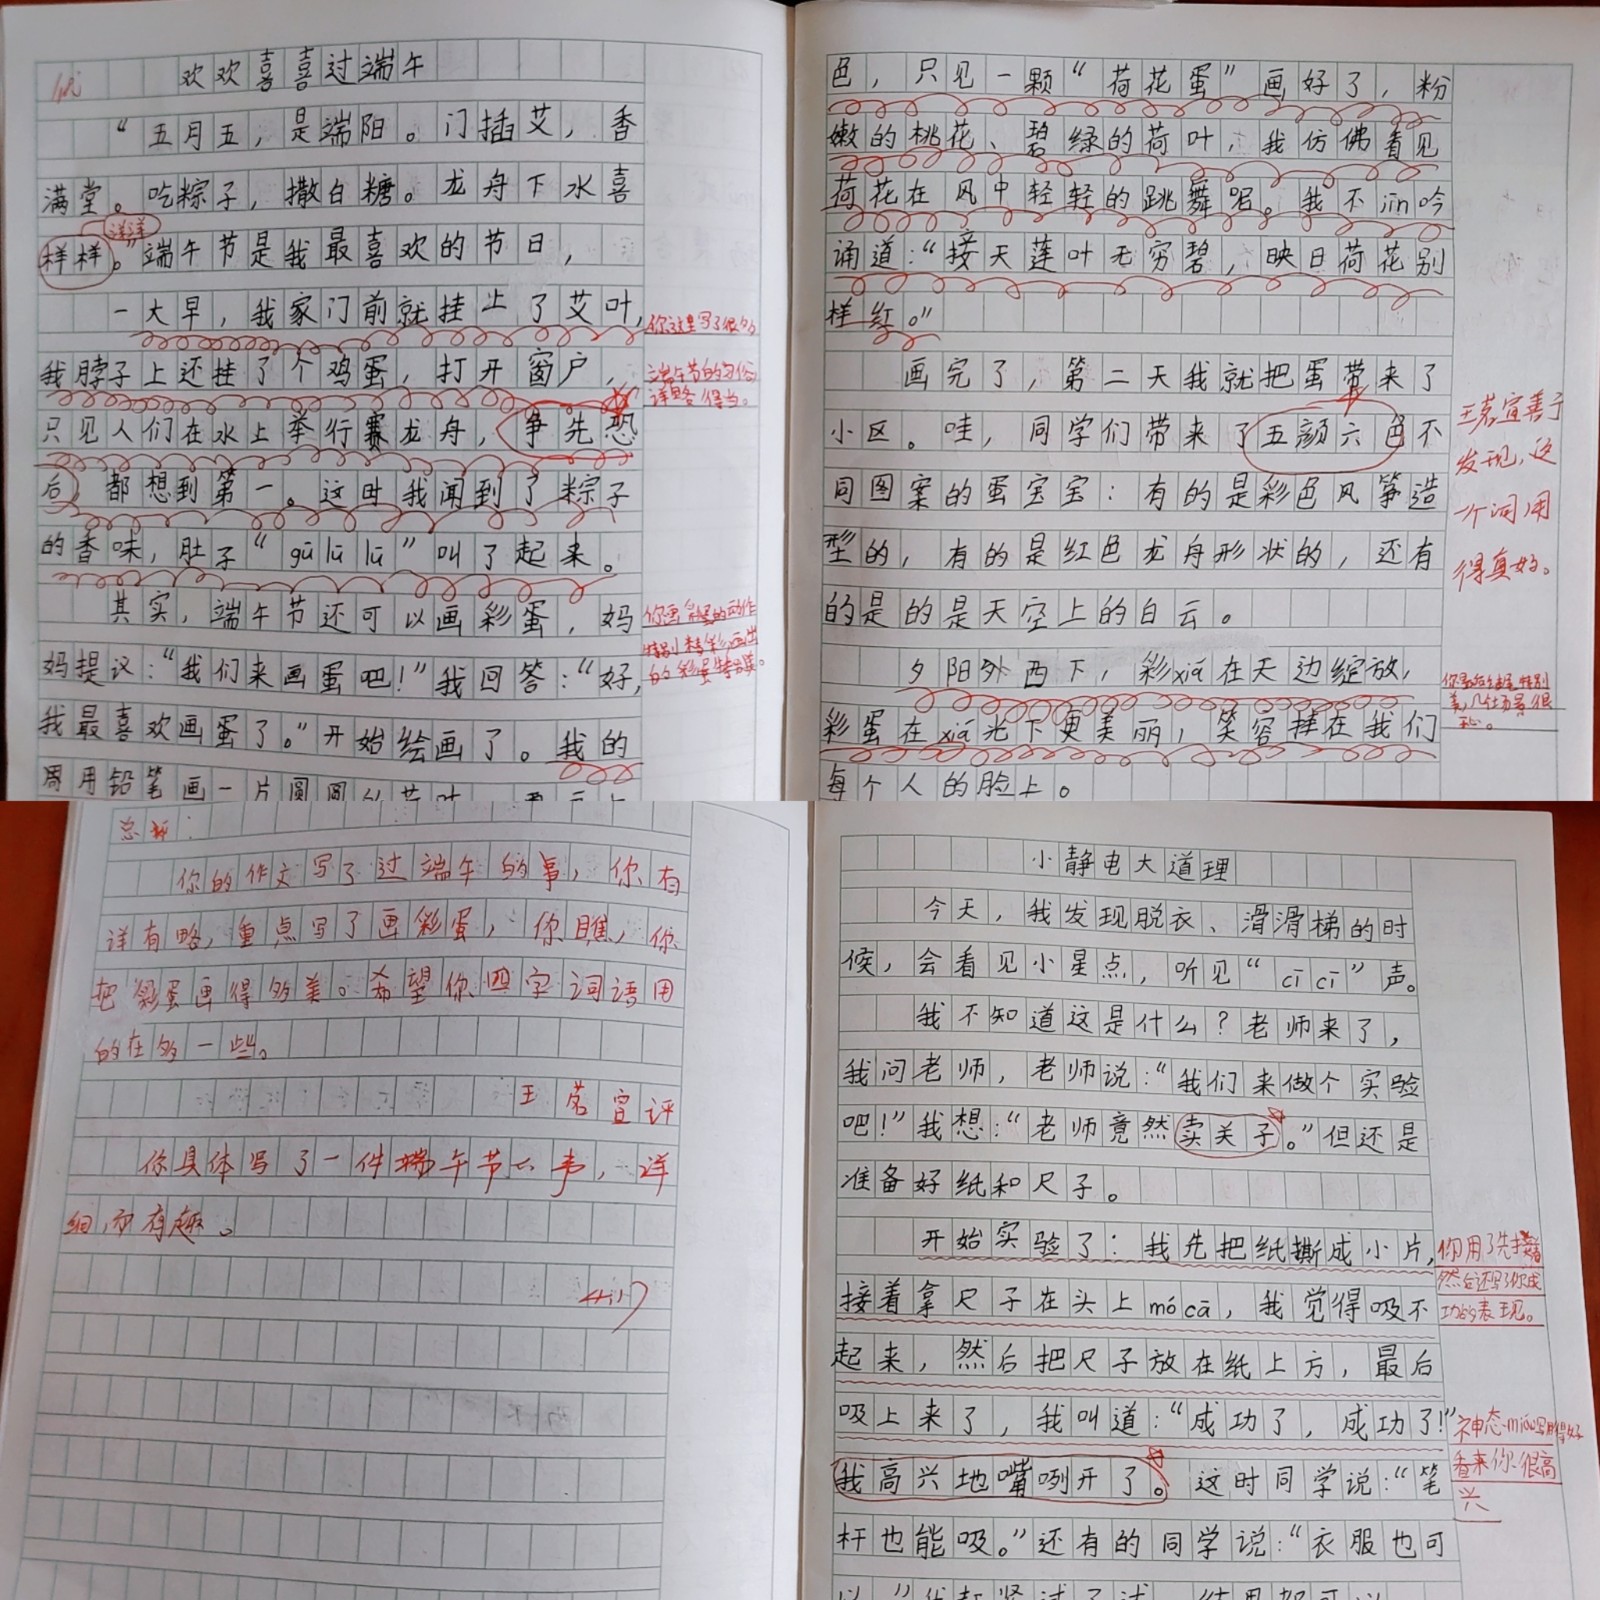 优
欢欢喜喜过端午
“五月五，是端阳。门插艾，香
满堂。吃粽子，撒白糖。龙舟下水喜
洋洋
样样。”端午节是我最喜欢的节日，
一大早，我家门前就挂上了艾叶，
我脖子上还挂了个鸡蛋，打开窗户，
只见人们在水上举行赛龙舟，争先恐
后，都想到第一。这时我闻到了粽子
的香味，肚子“gū lū lū”叫了起来。
其实，端午节还可以画彩蛋，妈
妈提议：“我们来画蛋吧！”我回答：“好，
我最喜欢画蛋了。”开始绘画了。我的
周用铅笔画一片圆圆的荷叶
你这里写了很多
端午节的习俗
详略得当。
你画彩蛋的动作
特别精彩画出
的彩蛋特别美。
色，只见一颗“荷花蛋”画好了，粉
嫩的桃花、碧绿的荷叶，我仿佛看见
荷花在风中轻轻的跳舞呢。我不jīn吟
诵道：“接天莲叶无穷碧，映日荷花别
样红。”
画完了，第二天我就把蛋带来了
小区。哇，同学们带来了五颜六色不
同图案的蛋宝宝：有的是彩色风筝造
型的，有的是红色龙舟形状的，还有
的是的是天空上的白云。
夕阳外西下，彩xiá在天边绽放，
彩蛋在xiá光下更美丽，笑容挂在我们
每个人的脸上。
王茗宣善于
发现，这
个词用
得真好。
你最后结尾特别
美，
总评：
你的作文写了过端午的事，你有
详有略，重点写了画彩蛋，你瞧，你
把彩蛋画得多美。希望你四字词语用
的在多一些。
王茗宣评
你具体写了一件端午节的事，详
细而有趣。
小静电大道理
今天，我发现脱衣、滑滑梯的时
候，会看见小星点，听见“cī cī”声。
我不知道这是什么？老师来了，
我问老师，老师说：“我们来做个实验
吧！”我想：“老师竟然卖关子。”但还是
准备好纸和尺子。
开始实验了：我先把纸撕成小片，
接着拿尺子在头上mó cā，我觉得吸不
起来，然后把尺子放在纸上方，最后
吸上来了，我叫道：“成功了，成功了！”
我高兴地嘴咧开了。这时同学说：“笔
杆也能吸。”还有的同学说：“衣服也可
以。”我赶紧试了试，结果都可以
你用了先接着
然后还写了你成
功的表现。
神态miáo写用得好
看来你很高
兴